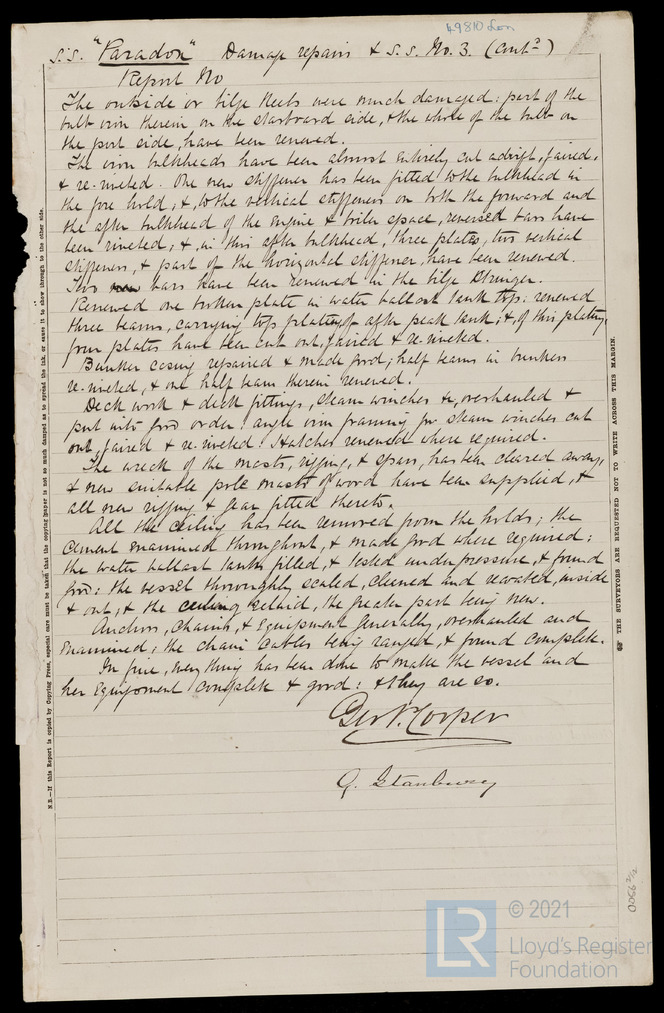 49810 Lon
S.S. "Paradox" Damage repairs & S.S. No. 3. (Contd)
Report No
The outside or bilge keels were much damaged: part of the
bulb iron therein on the starboard side, & the whole of the bulb on
the port side, have been renewed.
The iron bulkheads have been almost entirely cut adrift, faired,
& re-riveted. One new stiffener has been fitted to the bulkhead in
the fore hold; & to the vertical stiffeners on both the forward and
the after bulkhead of the engine & boiler space, reversed bars have
been riveted; & in this after bulkhead, three plates, two vertical
stiffeners, & part of the horizontal stiffener, have been renewed.
Two bars have been renewed in the bilge Stringer.
Renewed one broken plate in water ballast tank tops: renewed
three beams, carrying top plating of after peak tank; & of this plating,
four plates have been cut out, faired & re-riveted.
Bunker casing repaired & made good; half beams in bunkers
re-riveted, & one half beam therein renewed.
Deck work & deck fittings, steam winches &c, overhauled &
put into good order. angle iron framing for steam winches cut
out, faired & re-riveted. Hatches renewed where required.
The wreck of the masts, rigging, & spars, has been cleared away,
& new suitable pole masts of wood have been supplied, &
all new rigging & gear fitted thereto.
All the ceiling has been removed from the holds; the
cement examined throughout, & made good where required:
the water ballast tanks filled, & tested under pressure, & found
good: the vessel thoroughly scaled, cleaned and recoated, inside
& out; & the ceiling relaid, the greater part being new.
Anchors, Chains, & Equipment generally, overhauled and
examined; the chain cables being ranged, & found complete.
In fine, everything has been done to make the vessel and
her Equipment complete & good: & they are so.
Geo. N. Cooper
G. Stanbury
N.B.—If this Report is copied by Copying Press, especial care must be taken that the copying paper is not so much damped as to spread the ink, or cause it to show through to the other side.
THE SURVEYORS ARE REQUESTED NOT TO WRITE ACROSS THIS MARGIN.
LR
© 2021
Lloyd's Register
Foundation